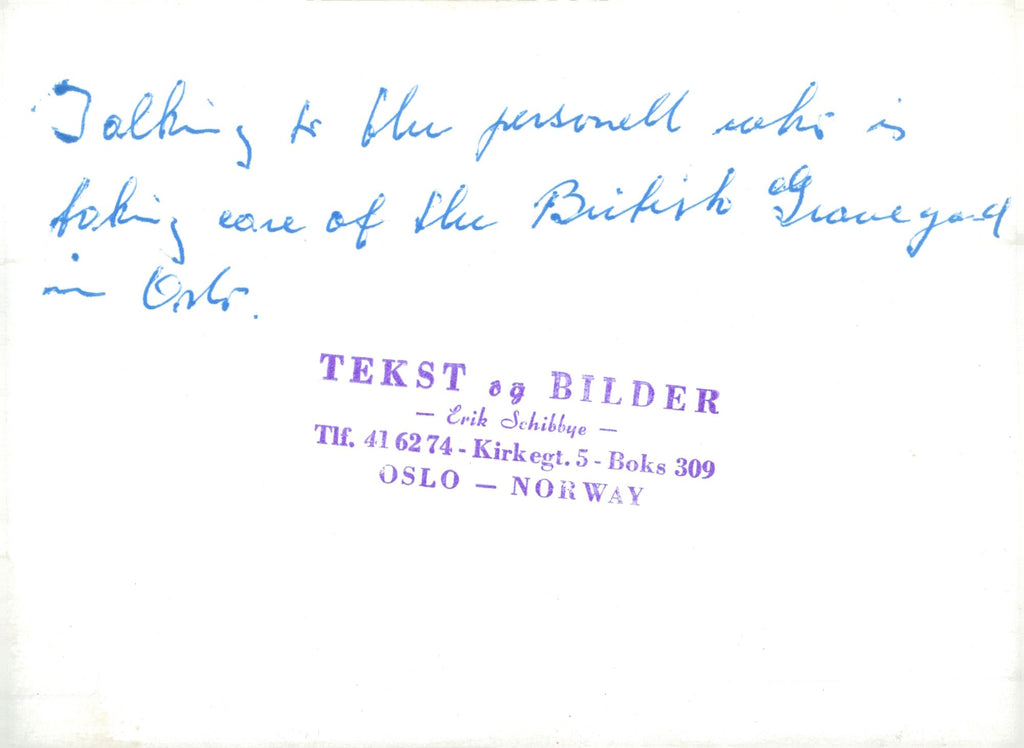 Talking to the personell who is
taking care of the British Graveyard
in Oslo.
TEKST og BILDER
— Erik Schibbye —
Tlf. 41 62 74 - Kirkegt. 5 - Boks 309
OSLO — NORWAY